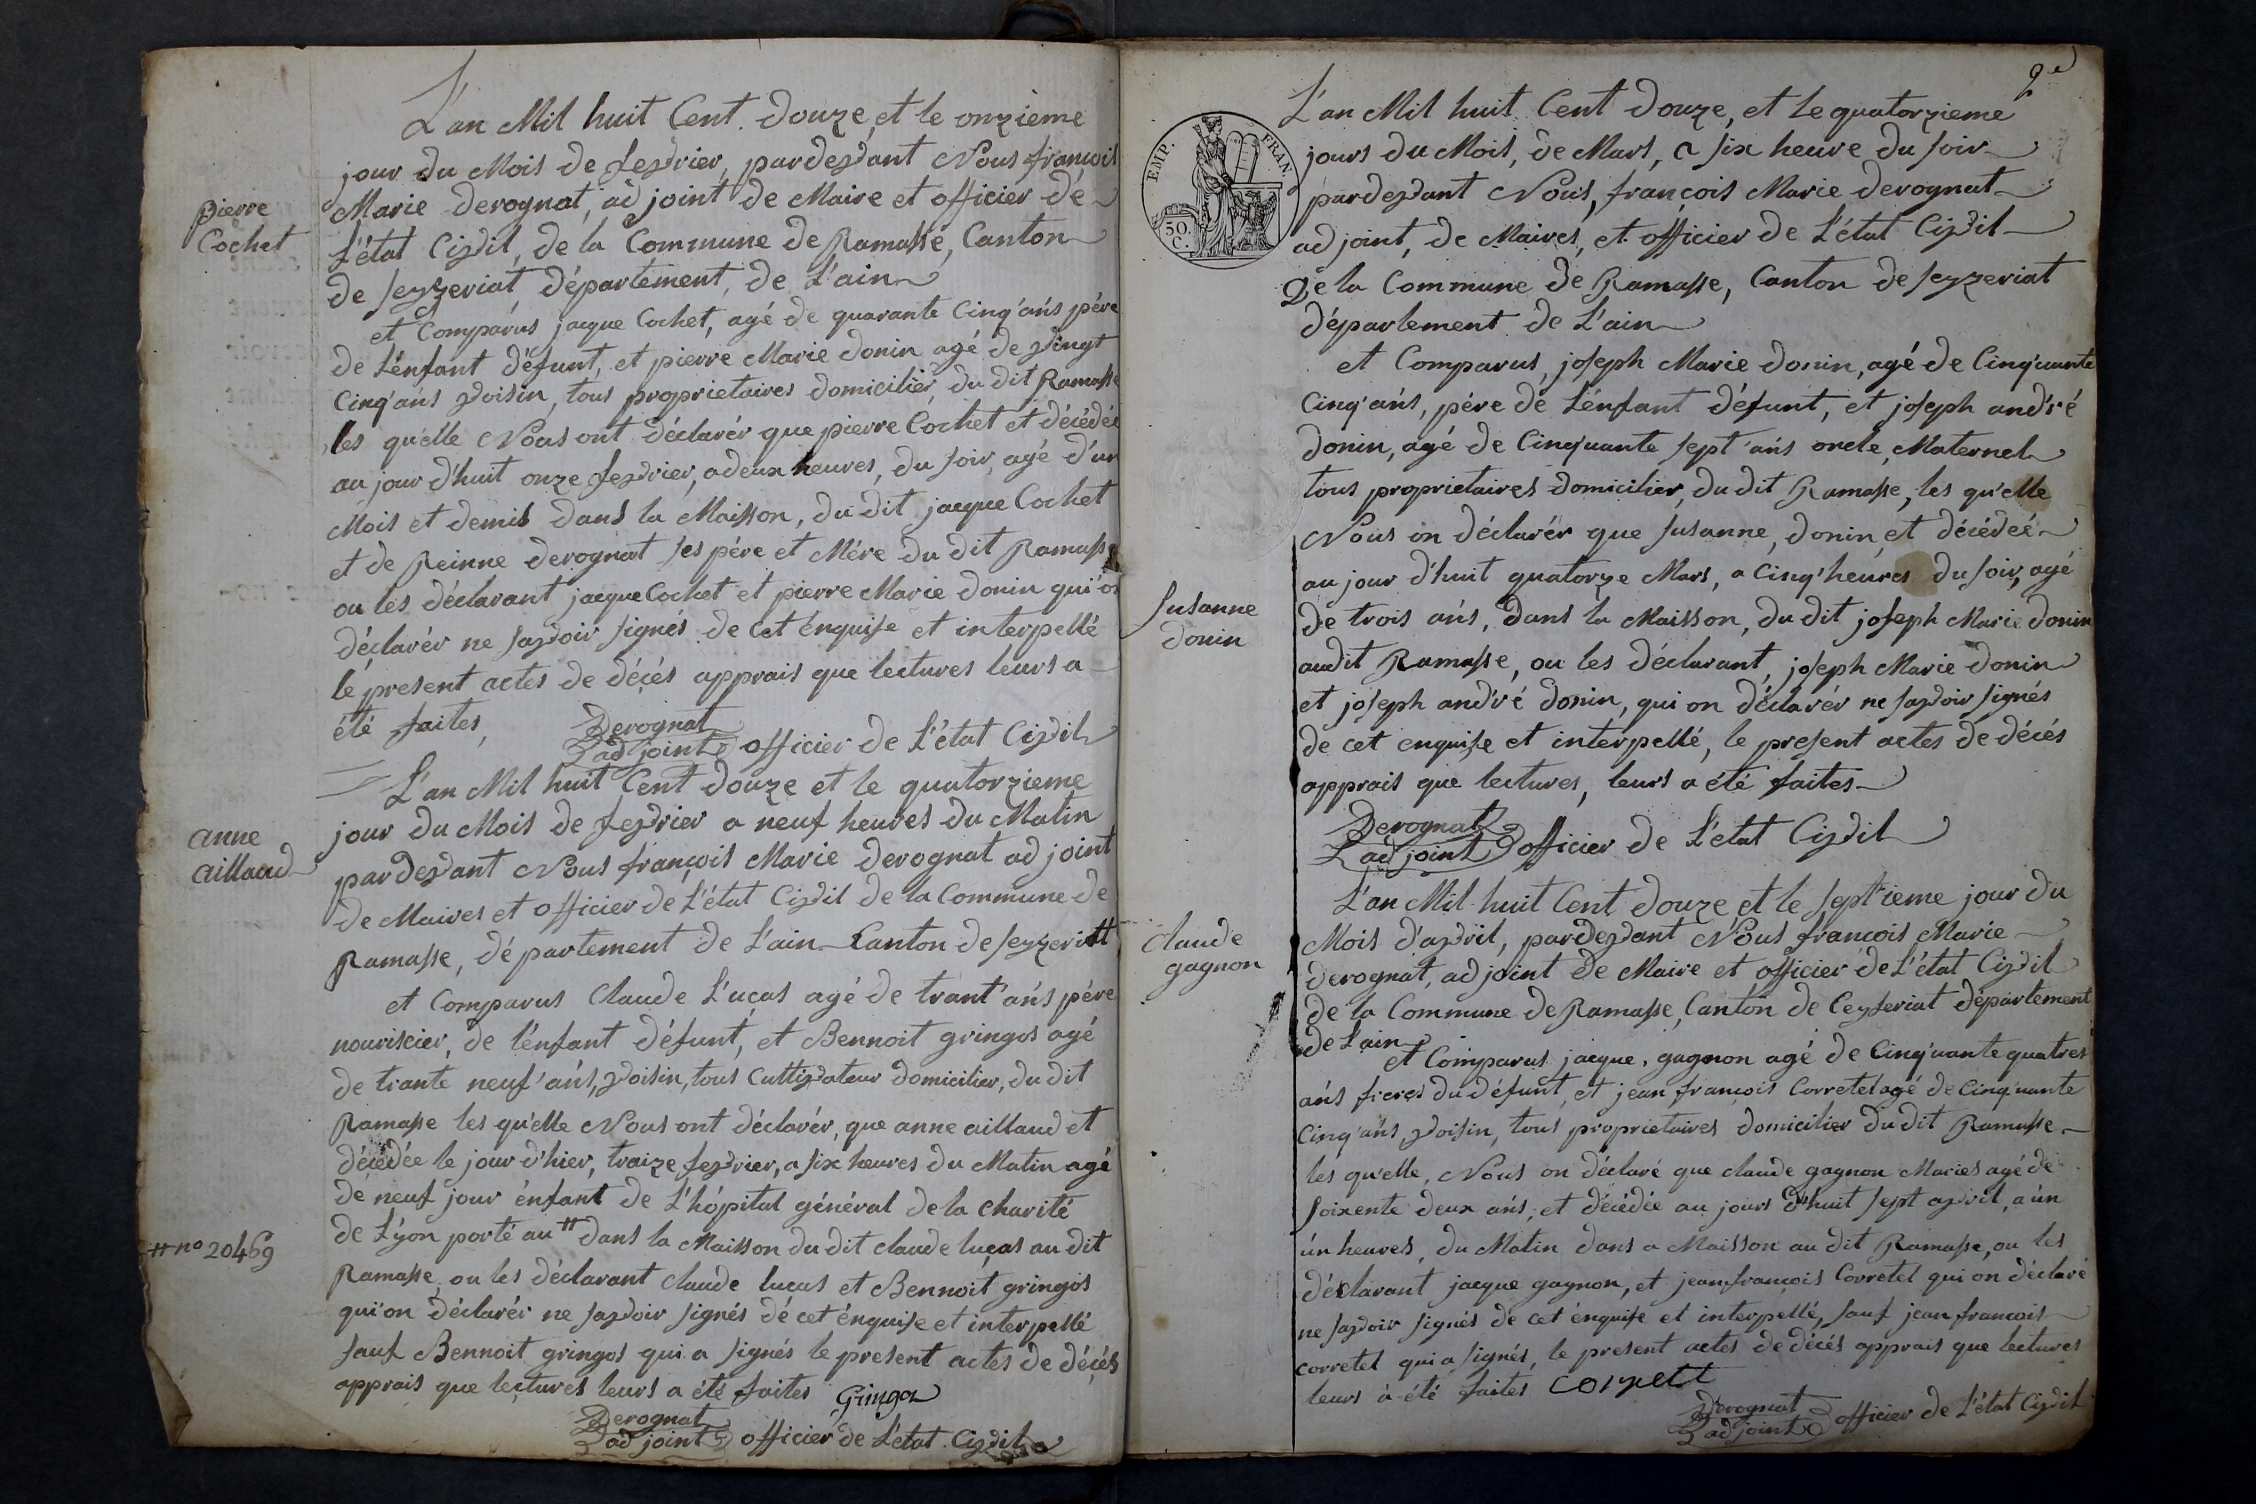 Pierre
Cochet
L'an Mil huit Cent Douze, et le onzieme
jour du Mois de fevrier, pardevant Nous françois
Marie derognat, ad joint de Maire et officier de
L'état Civil, de la Commune de Ramasse, Canton
de seyzeriat, département, de L'ain
et Comparus jacque Cochet, agé de quarante Cinq'ans père
de L'énfant défunt, et pierre Marie donin agé de vingt
Cinq'ans voisin, tous proprietaires domicilier, du dit Ramasse
les qu'elle Nous ont déclarér que pierre Cochet et décédée
au jour d'huit onze fevrier, a deux heures, du soir, agé d'un
Mois et demis dans la Maisson, du dit jacque Cochet
et de Reinne derognat ses père et Mére du dit Ramasse
ou les déclarant jacque Cochet et pierre Marie donin qui on
déclarér ne savoir signés de cet énquise et interpellé
le present actes de décés apprais que lectures leurs a
été faites, Derognat
ad joint officier de L'état Civil
anne
aillaud
L'an Mil huit Cent douze et le quatorzieme
jour du Mois de fevrier a neuf heures du Matin
pardevant Nous françois Marie derognat ad joint
de Maires et officier de L'état Civil de la Commune de
Ramasse, département de L'ain Canton de seyzeriatt
et Comparus Claude L'ucas agé de trant'ans pére
nouriscier, de l'énfant défunt, et Bennoit gringos agé
de trante neuf'ans, voisin, tous Cultivateur domicilier, du dit
Ramasse les qu'elle Nous ont déclarér, que anne aillaud et
décédée le jour d'hier, traize fevrier, a six heures du Matin agé
dé neuf jour énfant de L'hópital général de la Charité
de Lÿon porté au # dans la Maisson du dit claude luças au dit
# no 20469
Ramasse, ou les déclarant claude lucas et Bennoit gringos
qui on déclarér ne savoir signés dé cet énquise et interpellé
sauf Bennoit gringos qui a signés le present actes de décés
apprais que lectures leurs a été faites Gringoz
Derognat
ad joint officier de L'état Civil
2e
EMP. FRAN.
50.
C.
L'an Mil huit Cent Douze, et le quatorzieme
jours du Mois, de Mars, a six heure du soir
pardevant Nous, françois Marie derognat
ad joint, de Maires, et officier de L'état Civil
De la Commune de Ramasse, Canton de seyzeriat
département de L'ain
et Comparus, joseph Marie donin, agé de Cinq'uante
Cinq'ans, pére dé L'énfant défunt, et joseph andré
donin, agé de Cinq'uante sept'ans oncle, Maternel
tous proprietaires domicilier, du dit Ramasse, les qu'elle
Nous on déclarér que susanne, donin, et décédeé
au jour d'huit quatorze Mars, a Cinq'heures du soir, agé
Susanne
donin
de trois ans, dans la Maisson, du dit joseph Marie donin
audit Ramasse, ou les déclarant, joseph Marie donin
et joseph andré donin, qui on déclarér ne savoir signés
de cet enquise et interpellé, le present actes dé décés
apprais que lectures, leurs a été faites
Derognat
ad joint officier de L'état Civil
Claude
gagnon
L'an Mil huit Cent douze et le sept'ieme jour du
Mois d'avril, pardevant Nous francois Marie
derognat, ad joint de Maire et officier de L'état Civil
de la Commune de Ramasse, Canton de Ceyseriat département
de L'ain
et Comparus jacque, gagnon agé de Cinq'uante quatres
ans freres du défunt, et jean françois Corretel agé de Cinq'uante
Cinq'ans voisin, tous proprietaires domicilier du dit Ramasse
les qu'elle, Nous on déclaré que claude gagnon Maries agé de
soixente deux ans, et décédée au jours d'huit sept avril, a ún
ún heures, du Matin dans a Maisson au dit Ramasse, ou les
déclarant jacque gagnon, et jean françois Corretel qui on déclaré
ne savoir signés dé cet énquise et interpellé, sauf jean francois
corretel qui a signés, le present actes de décés apprais que lectures
leurs à été faites
Derognat
ad joint officier de L'état Civil